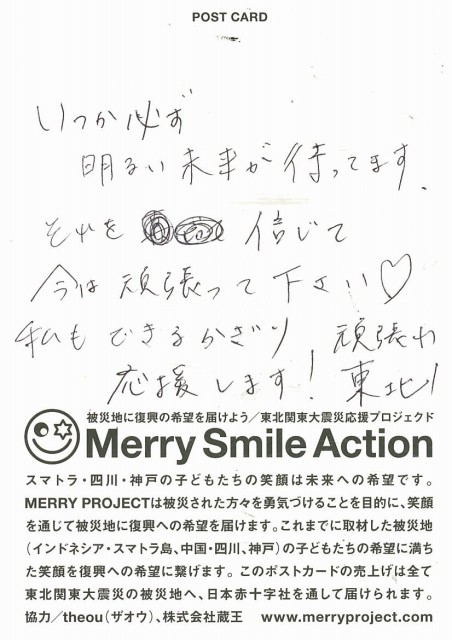 POST CARD
いつか必ず
明るい未来が待ってます.
それを 信じて
今は 頑張って下さい♡
私もできるかぎり
応援します!
頑張れ
東北!
被災地に復興の希望を届けよう/東北関東大震災応援プロジェクド
Merry Smile Action
スマトラ・四川・神戸の子どもたちの笑顔は未来への希望です。
MERRY PROJECTは被災された方々を勇気づけることを目的に、笑顔
を通じて被災地に復興への希望を届けます。これまでに取材した被災地
(インドネシア・スマトラ島、中国・四川、神戸)の子どもたちの希望に満ち
た笑顔を復興への希望に繋げます。このポストカードの売上げは全て
東北関東大震災の被災地へ、日本赤十字社を通して届けられます。
協力/theou(ザオウ)、株式会社蔵王 www.merryproject.com